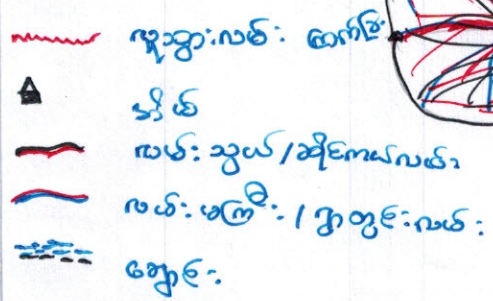 လူသွားလမ်း ဖောက်ပြီး
အိမ်
လမ်းသွယ် / ဆိုင်ကယ်လမ်း
လမ်းမကြီး / ရွာတွင်းလမ်း
ချောင်း